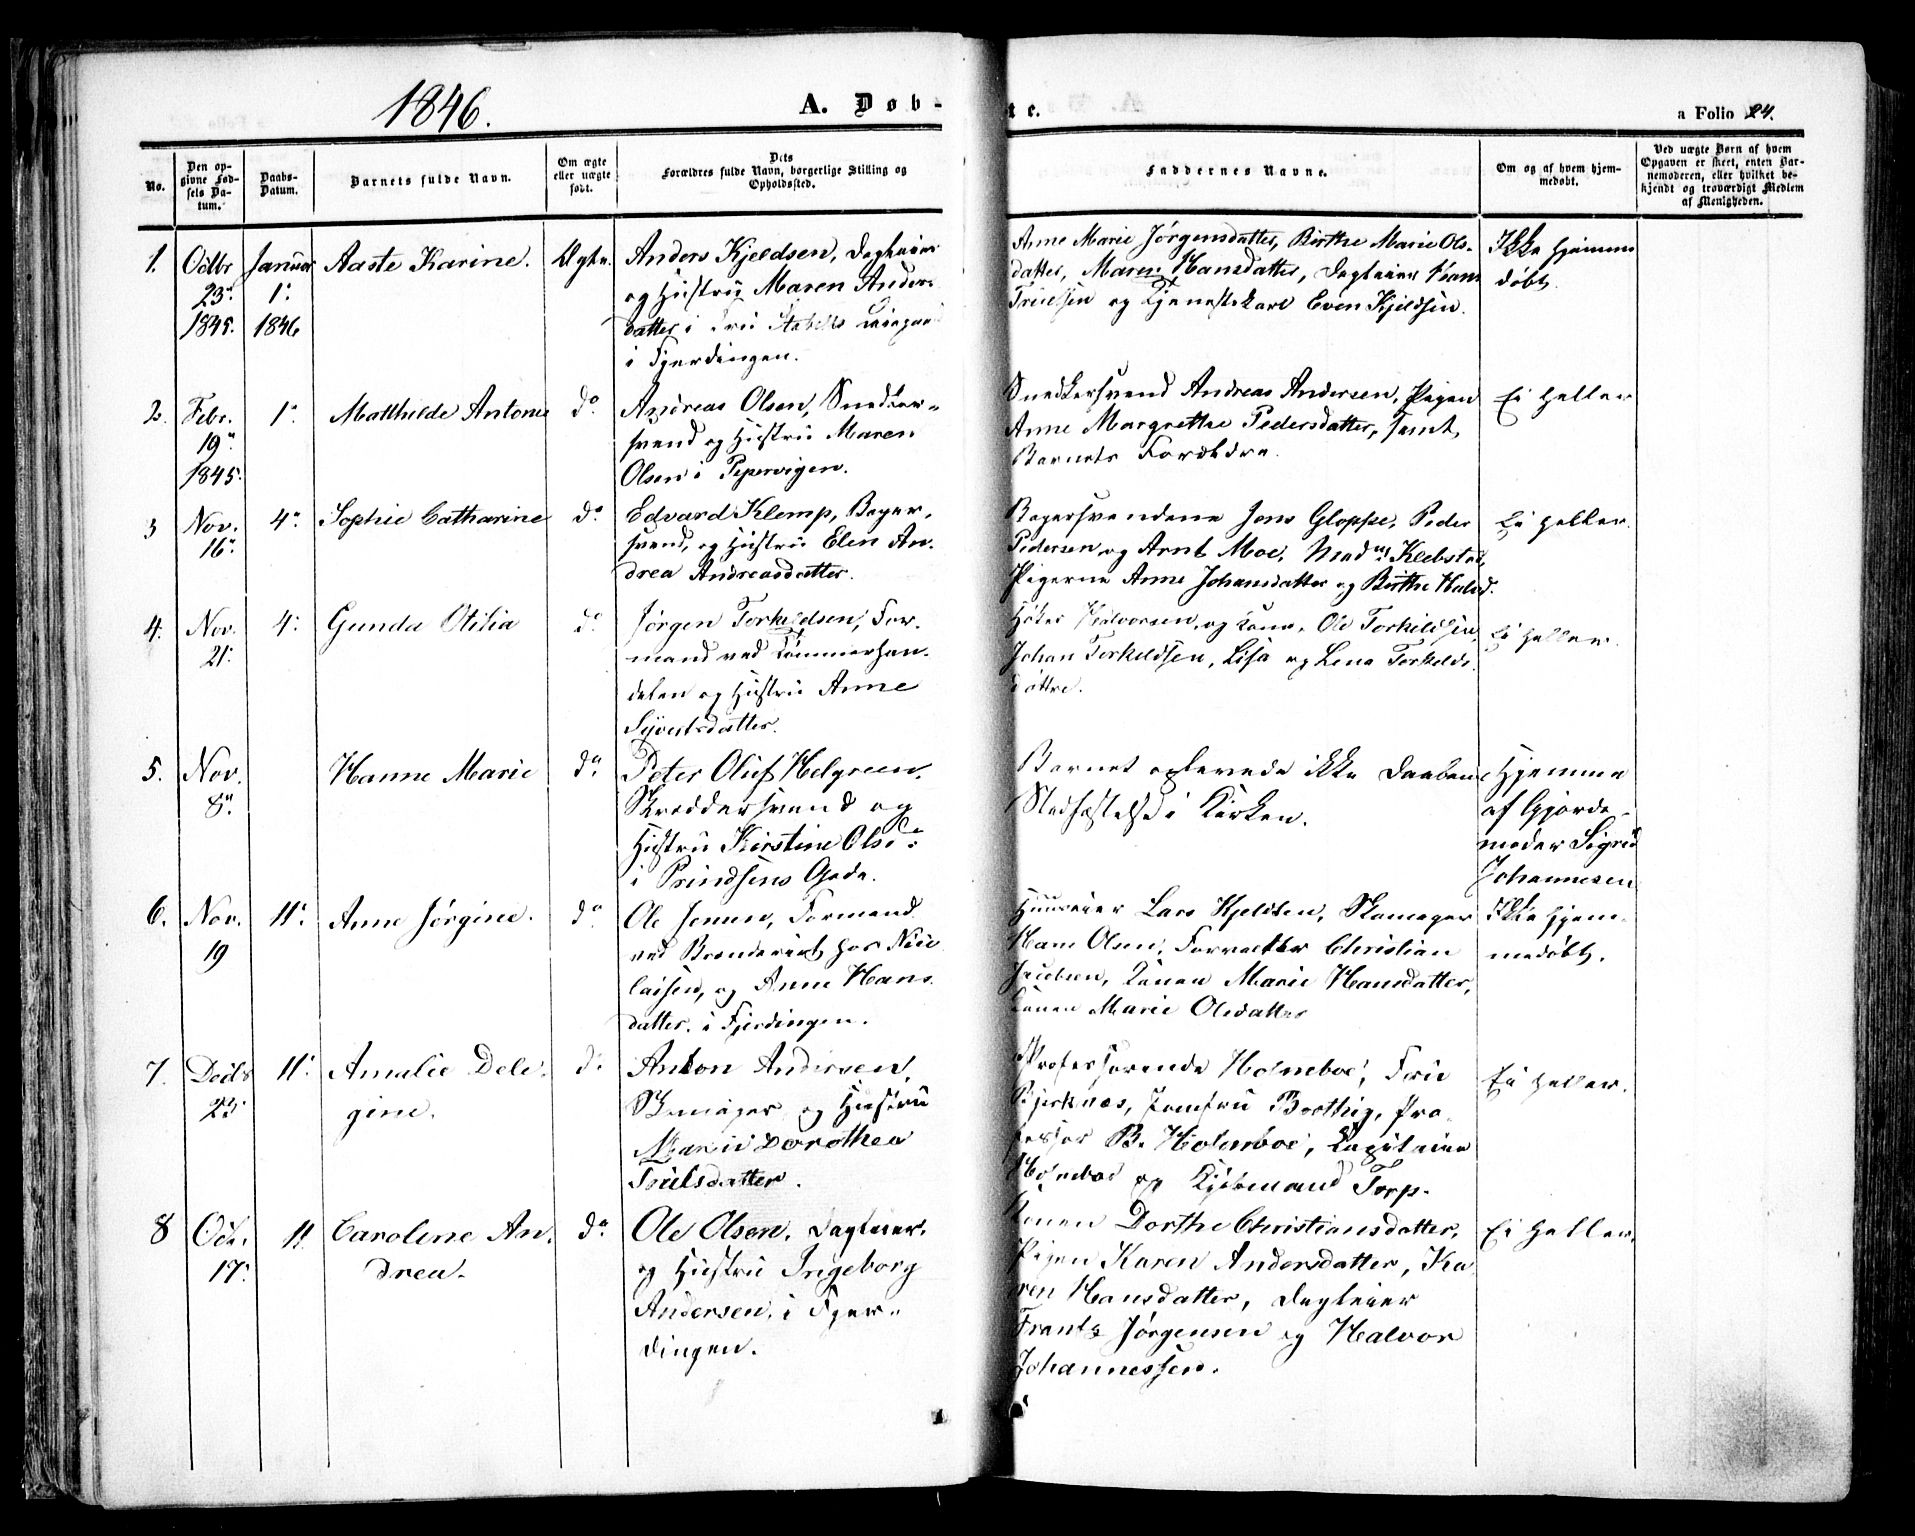 1846.
A. Døb-
te.
a Folio 24.
No.
Den op-
givne Fød-
sels Da-
tum.
Daabs-
Datum.
Barnets fulde Navn.
Om ægte
eller uægte
født.
Dets
Forældres fulde Navn, borgerlige Stilling og
Opholdssted.
Faddernes Navne.
Om og af hvem hjem-
medøbt.
Ved uægte Børn af hvem
Opgaven er skeet, enten Bar-
nemoderen, eller hvilket be-
kjendt og troværdigt Medlem
af Menigheden.
1.
Octbr
23.
1845.
Januar
1.
1846
Aaste Karine.
Ægte.
Anders Kjeldsen, Dagleier
og Hustru Maren Anders
datter i Fru
i Fjerdingen.
Anne Marie Jørgensdatter, Birthe Marie Ols-
datter, Maren Hansdatter, Dagleier Hans
Trulsen og Tjenestekarl Even Kjeldsen.
Ikke hjemme
døbt.
2.
Febr.
19.
1845.
1.
Matthilde Antonie
do.
Andreas Olsen, Snedker-
svend og Hustru Maren
Olsen i Pepervigen.
Snedkersvend Andreas Andersen, Pigen
Anne Margrethe Pedersdatter, samt
Barnets Forældre.
Ei heller
3
Nov.
16.
4.
Sophie Catharine
do.
Edvard Klemp, Bager-
svend, og Hustru Elen An-
drea Andreasdatter.
Bagersvendene Jens Gloppe, Peder
Pedersen og Arnt Moe, Mad. Klebstad,
Pigerne Anne Johansdatter og Birthe Halvd.
Ei heller.
4.
Nov.
21.
4.
Gunda Otilia
do.
Jørgen Torkildsen, For-
mand ved Tømmerhan-
delen og Hustru Anne
Syvertsdatter.
Høker Halvorsen, og Kone, Ole Torkildsen,
Johan Torkildsen, Lisa og Lena Torkilds
døttre.
Ei heller.
5.
Nov.
8.
Hanne Marie
do.
Peter Oluf Helgreen,
Skreddersvend og
Hustru Kirstine Olsdr.
i Prindsens Gade.
Barnet oplevede ikke Daabens
Stadfæstelse i Kirken.
Hjemme
af Gjorde-
moder Sigrid
Johannesen
6.
Nov.
19
11.
Anne Jørgine.
do.
Ole Jensen, Formand
ved Brænderiet hos Nico
laisen, og Anne Hans
datter. i Fjerdingen.
Huuseier Lars Kjeldsen, Skomager
Hans Olsen, Forvalter Christian
Jacobsen, Konen Marie Hansdatter,
Konen Marie Olsdatter
Ikke hjem-
medøbt.
7.
Decbr
23
11.
Amalie Dele-
gine.
do.
Anton Andersen,
Skomager og Hustru
Marie Dorothea
Trulsdatter.
Professorinde Holmboe, Frue
Bjerknæs, Jomfru Borthig, Pro-
fessor B. Holmboe, Capitain
Holmboe og Kjøbmand Torp.
Ei heller.
8
Oct.
17.
11.
Caroline An-
drea.
do.
Ole Olsen, Dagleier,
og Hustru Ingeborg
Andersen, i Fjer-
dingen.
Konen Dorthe Christiansdatter,
Pigen Karen Andersdatter, Ka
ren Hansdatter, Dagleier
Frants Jørgensen og Halvor
Johannessen.
Ei heller.